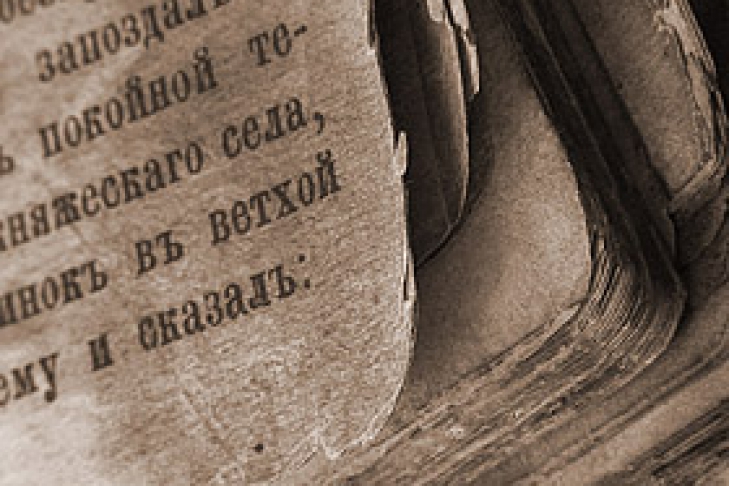 запоздал
ъ покойной те-
княжескаго села,
инокъ въ ветхой
ему и сказалъ: